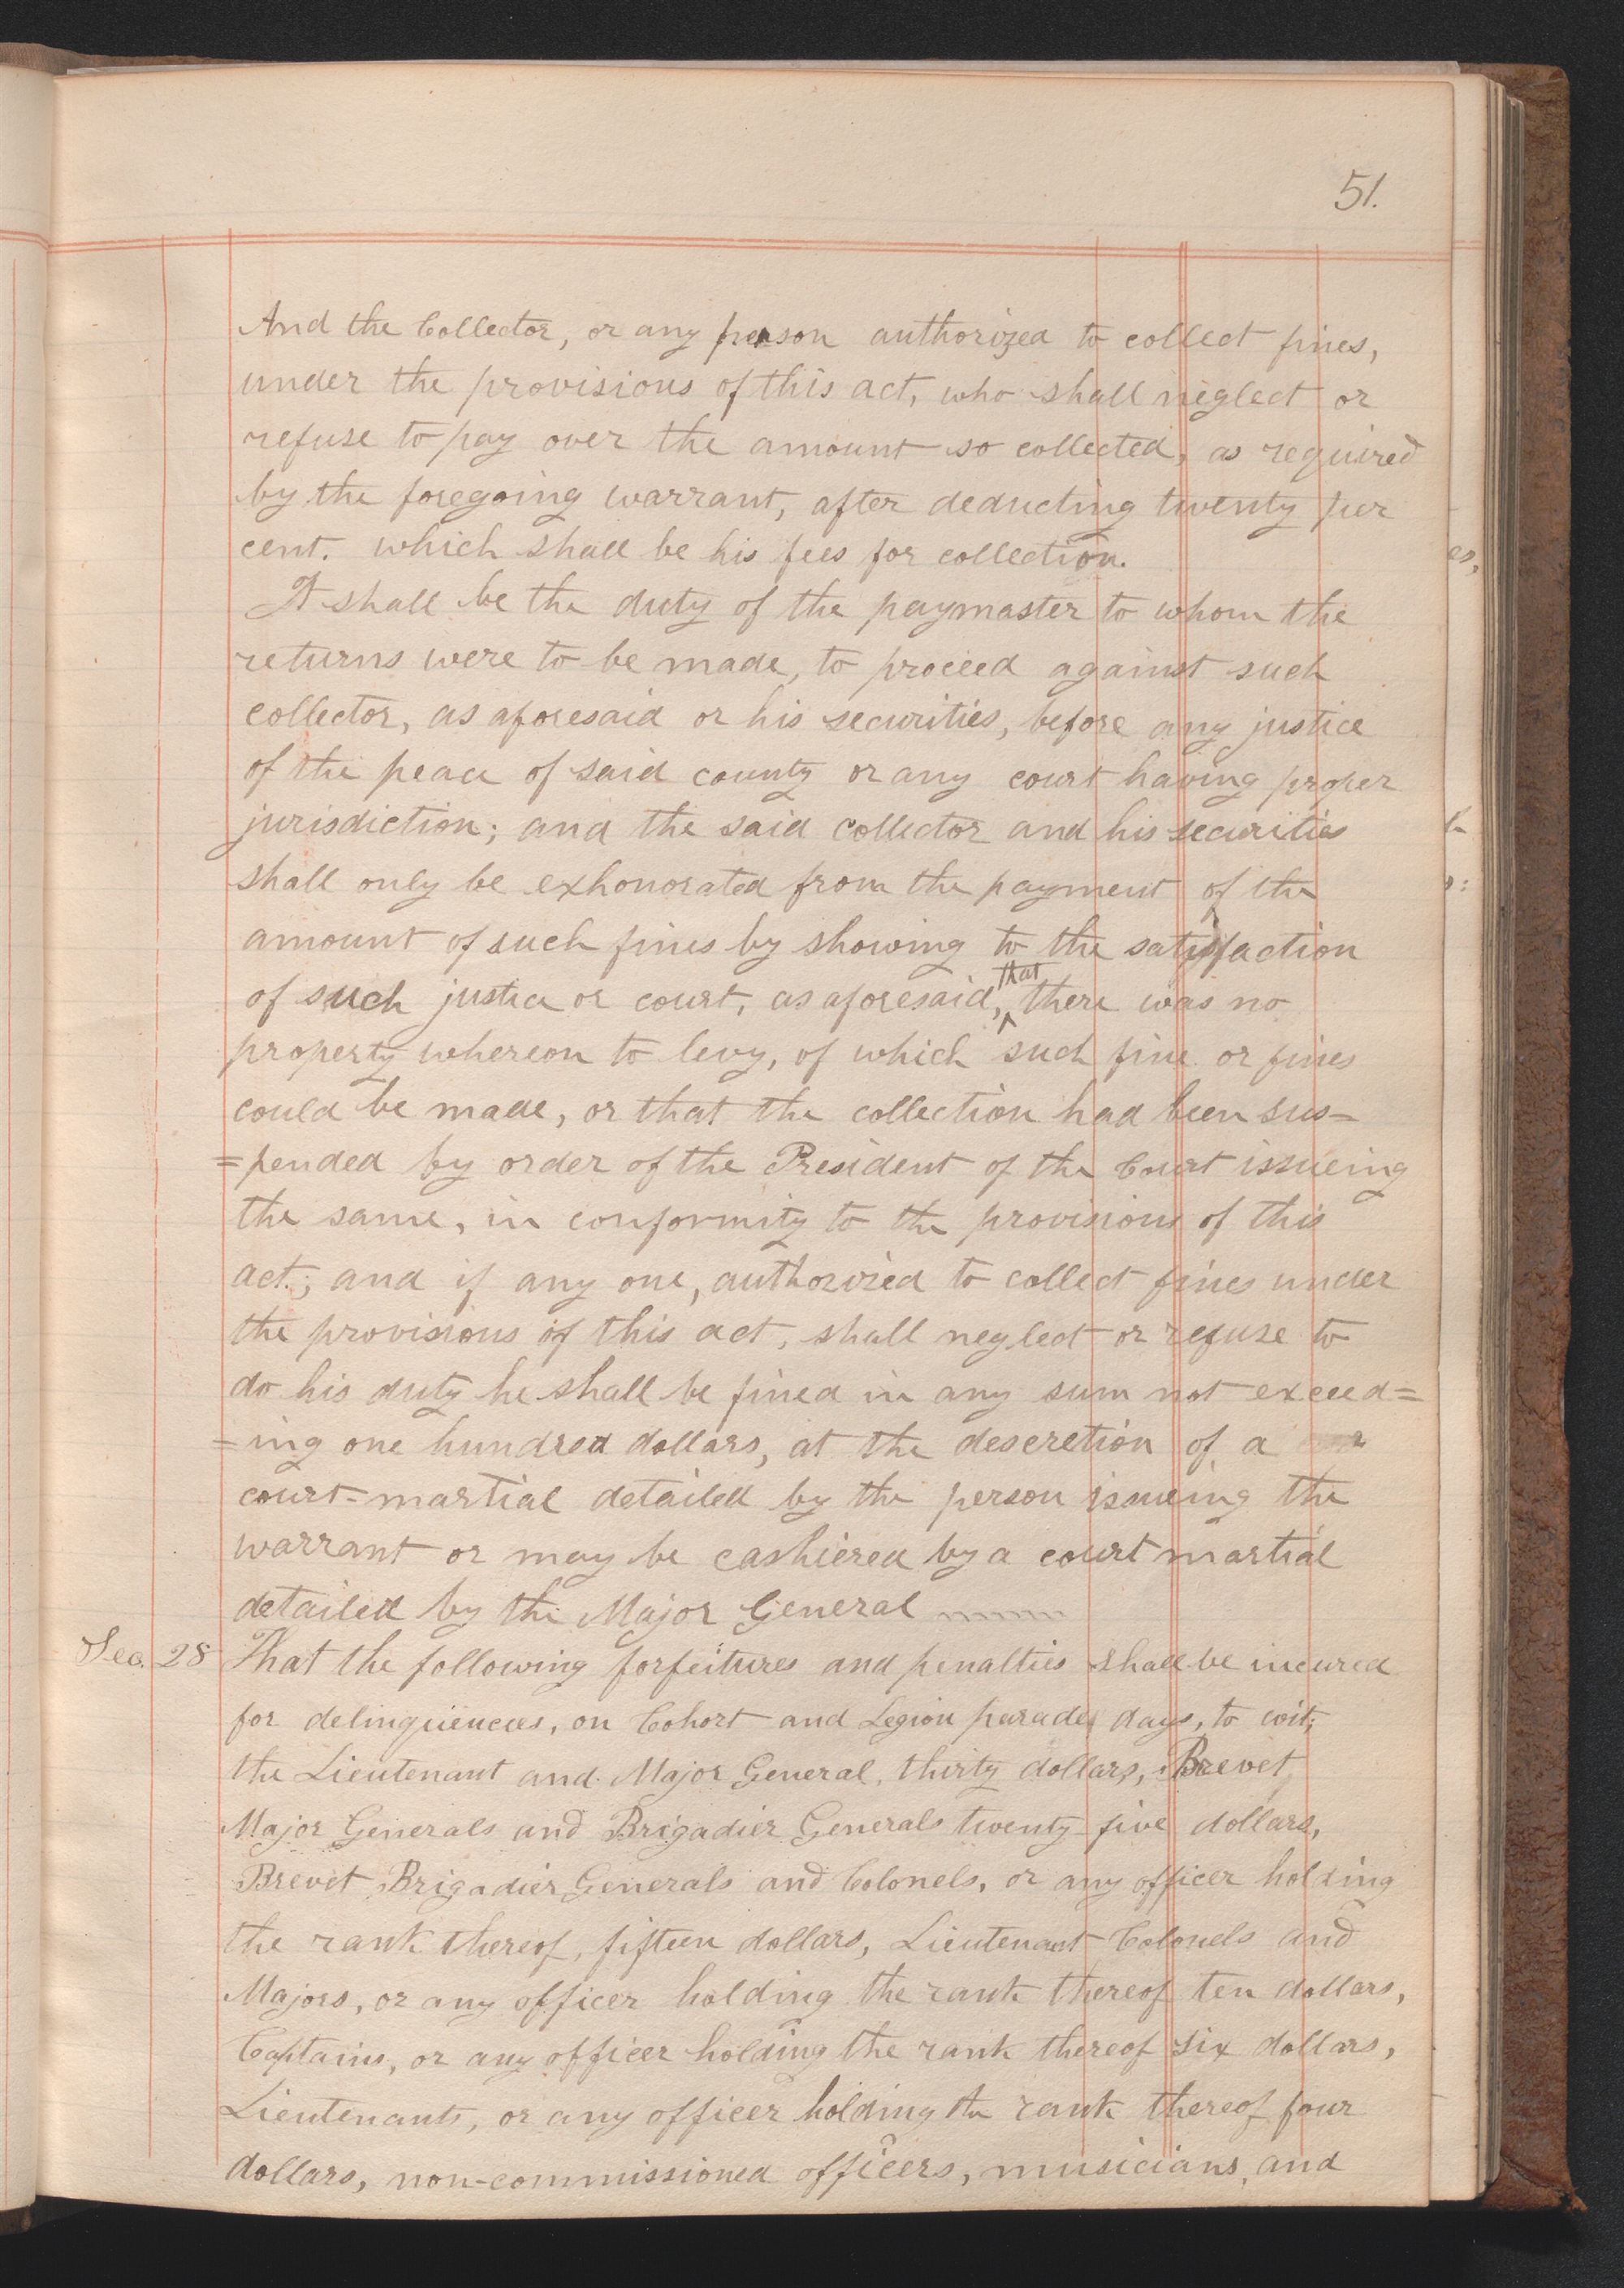 51.
And the Collector, or any person authorized to collect fines,
under the provisions of this act, who shall neglect or
refuse to pay over the amount so collected, as required
by the foregoing warrant, after deducting twenty per
cent. which shall be his fees for collection.
It shall be the duty of the paymaster to whom the
returns were to be made, to proceed against such
collector, as aforesaid or his securities, before any justice
of the peace of said county or any court having proper
jurisdiction; and the said collector and his securities
shall only be exhonorated from the payment of the
amount of such fines by showing to the satisfaction
of such justice or court, as aforesaid, that there was no
property whereon to levy, of which such fine or fines
could be made, or that the collection had been sus=
=pended by order of the President of the Court issueing
the same, in conformity to the provisions of this
act; and if any one, authorized to collect fines under
the provisions of this act, shall neglect or refuse to
do his duty he shall be fined in any sum not exceed=
=ing one hundred dollars, at the descretion of a
court-martial detailed by the person issueing the
warrant or may be cashiered by a court martial
detailed by the Major General
Sec. 28 That the following forfeitures and penalties shall be incured
for delinquencies, on Cohort and Legion parade days, to wit;
the Lieutenant and Major General, thirty dollars, Brevet
Major Generals and Brigadier Generals twenty five dollars,
Brevet Brigadier Generals and Colonels, or any officer holding
the rank thereof, fifteen dollars, Lieutenant Colonels and
Majors, or any officer holding the rank thereof ten dollars,
Captains, or any officer holding the rank thereof six dollars,
Lieutenants, or any officer holding the rank thereof four
dollars, non-commissioned officers, musicians, and